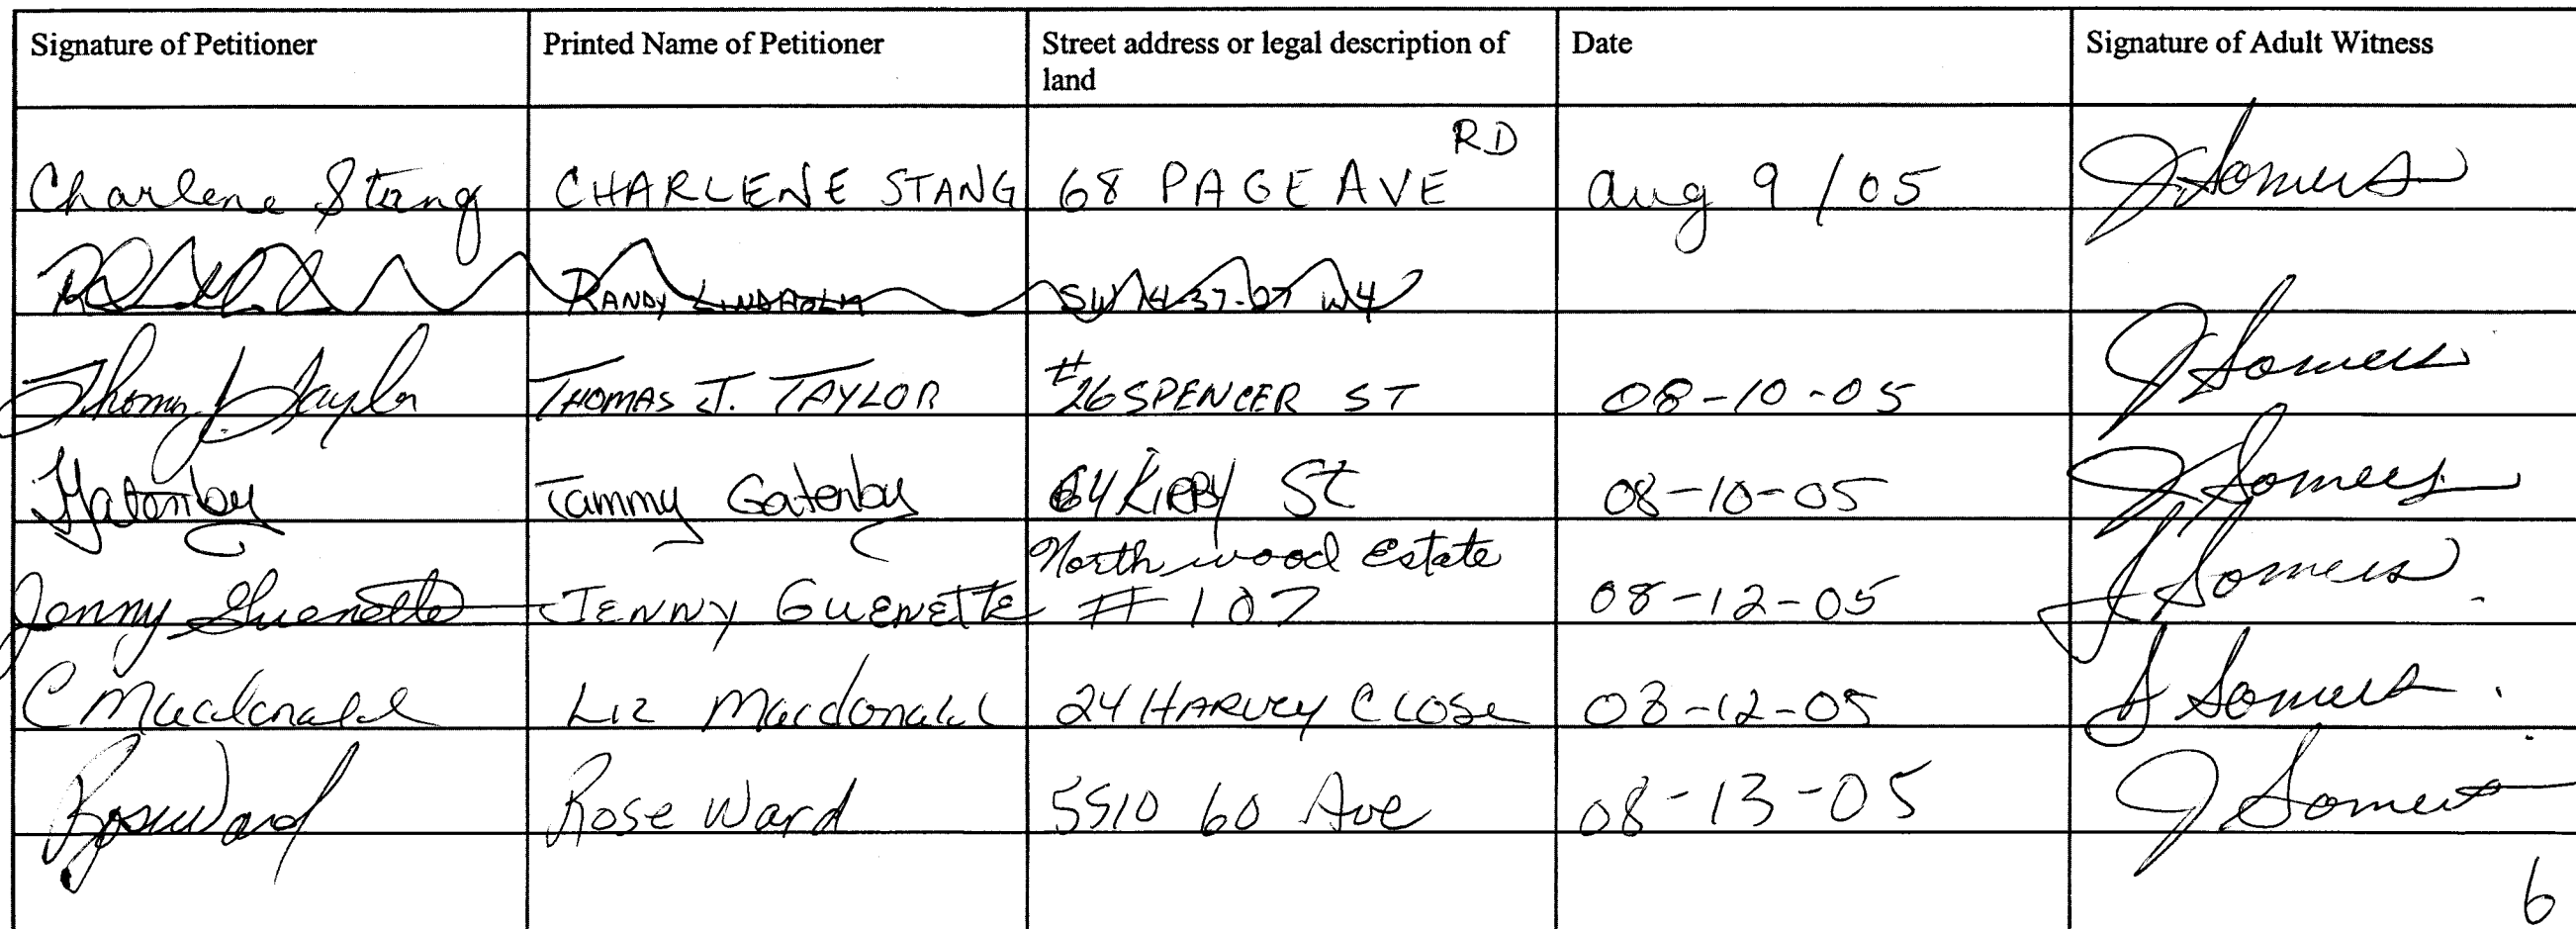 Signature of Petitioner Printed Name of Petitioner Street address or legal description of land Date Signature of Adult Witness
RD
Charlene Stang CHARLENE STANG 68 PAGE AVE Aug 9 / 05 J Somers
RANDY LINDHOLM SW 37-27 W4
Thomas J. Taylor THOMAS J. TAYLOR #26 SPENCER ST 08-10-05 J Somers
TGatenby Tammy Gatenby 64 KIRBY St 08-10-05 J Somers
Northwood Estate
Jenny Guenette JENNY GUENETTE # 107 08-12-05 J Somers
Macdonald Liz Macdonald 24 HARVEY CLOSE 08-12-05 J Somers
Rose Ward Rose Ward 5510 60 Ave 08-13-05 J Somers
6